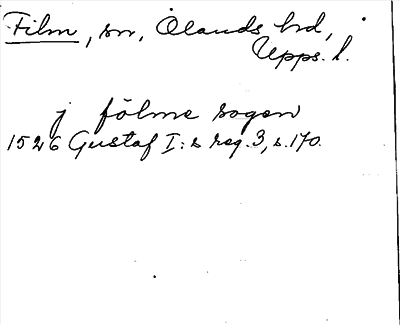 Film, sn, Olands hd,
Upps. l.
j fölme sogen
1526 Gustaf I:s reg. 3, s. 170.